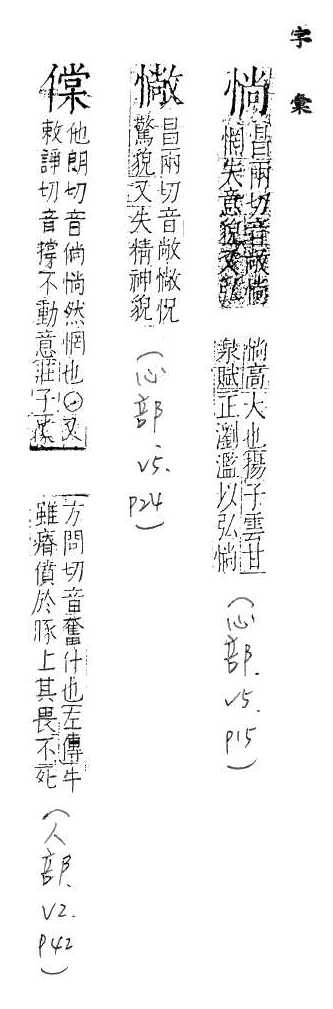 字彙
惝
昌兩切音敞惝
惘失意貌又弘
惝高大也揚子雲甘
泉賦正瀏濫以弘惝
(心部. v5. p15)
憿
昌兩切音敞憿怳
驚貌又失精神貌
(心部. v5. p24)
儻
他朗切音倘惝然惘也⊙又
敕諍切音撐不動意莊子儻
方問切音奮什也左傳牛
雖瘠僨於豚上其畏不死
(人部. v2. p42)